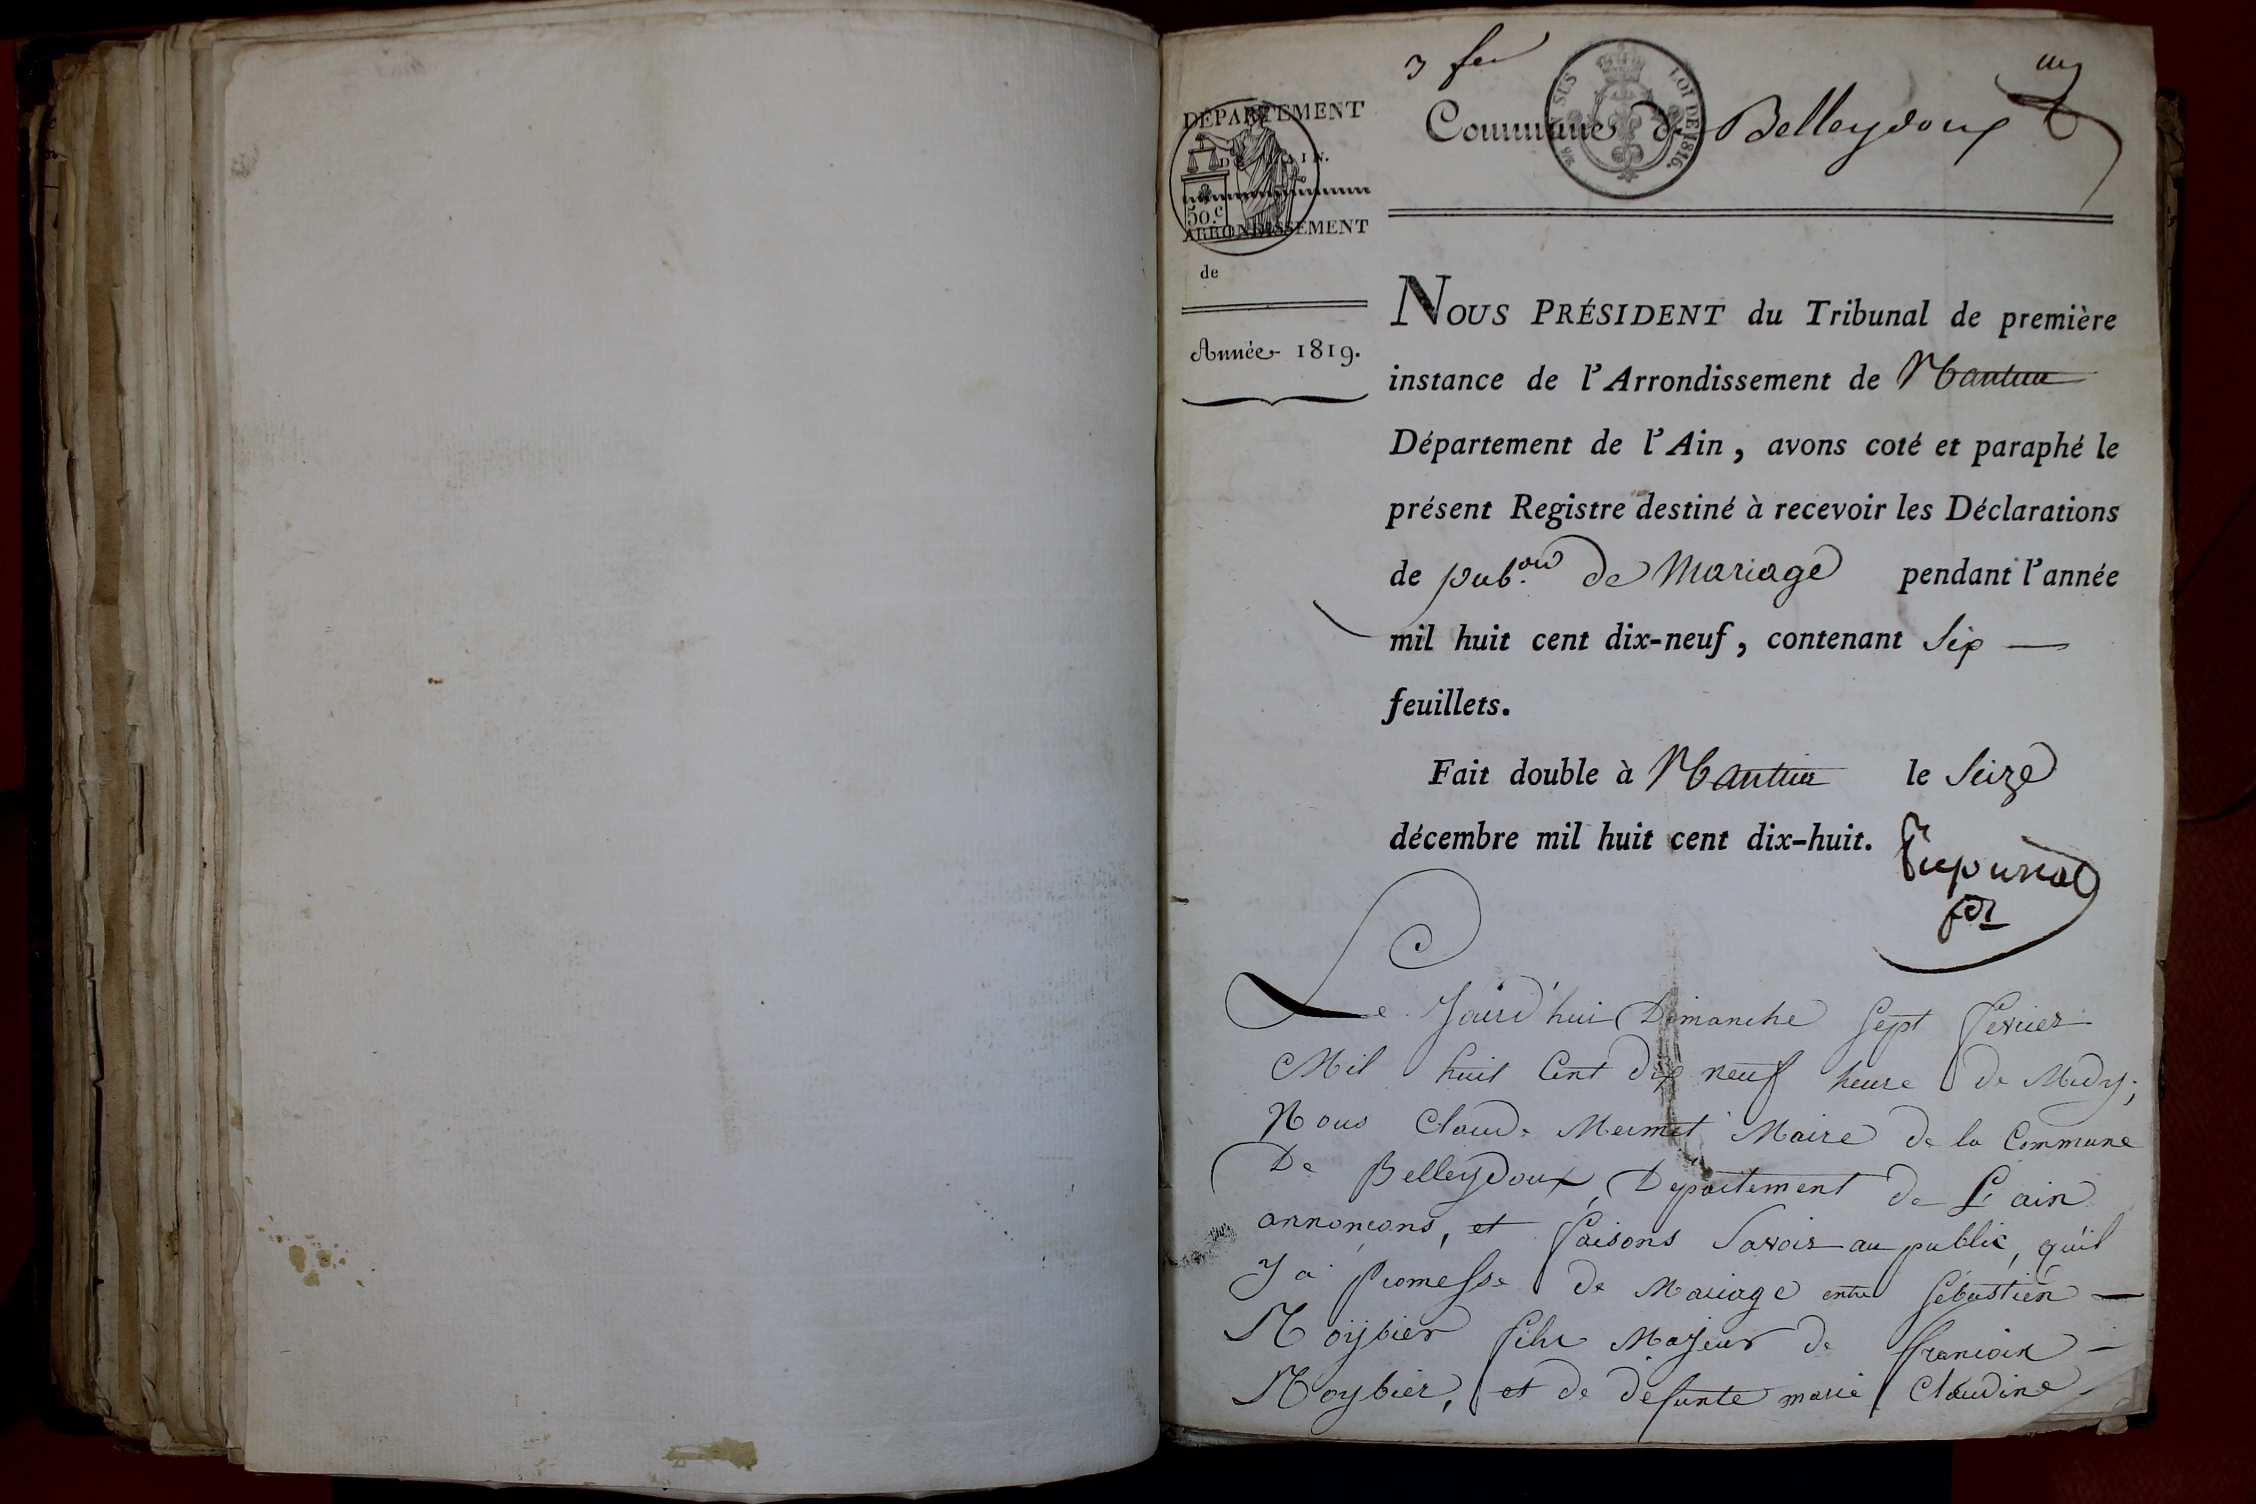 3 feu
EN SUS
LOI DE 1816.
Commune de Belleydoux
DÉPARTEMENT
DE L'AIN.
50.c
ARRONDISSEMENT
de
Année 1819.
NOUS PRÉSIDENT du Tribunal de première
instance de l'Arrondissement de Nantua
Département de l'Ain, avons coté et paraphé le
présent Registre destiné à recevoir les Déclarations
de pub.on de Mariage pendant l'année
mil huit cent dix-neuf, contenant Six —
feuillets.
Fait double à Nantua le Seize
décembre mil huit cent dix-huit.
Le Jourd'hui Dimanche Sept fevrier
Mil huit Cent dix neuf heure de Midy;
Nous Claude Mermet Maire de la Commune
De Belleydoux, Departement de L'ain
annonçons, et faisons Savoir au public, qu'il
y a promesse de Mariage entre Sébastien —
Moÿbier fils Majeur de francois —
Moybier, et de défunte marie Claudine -